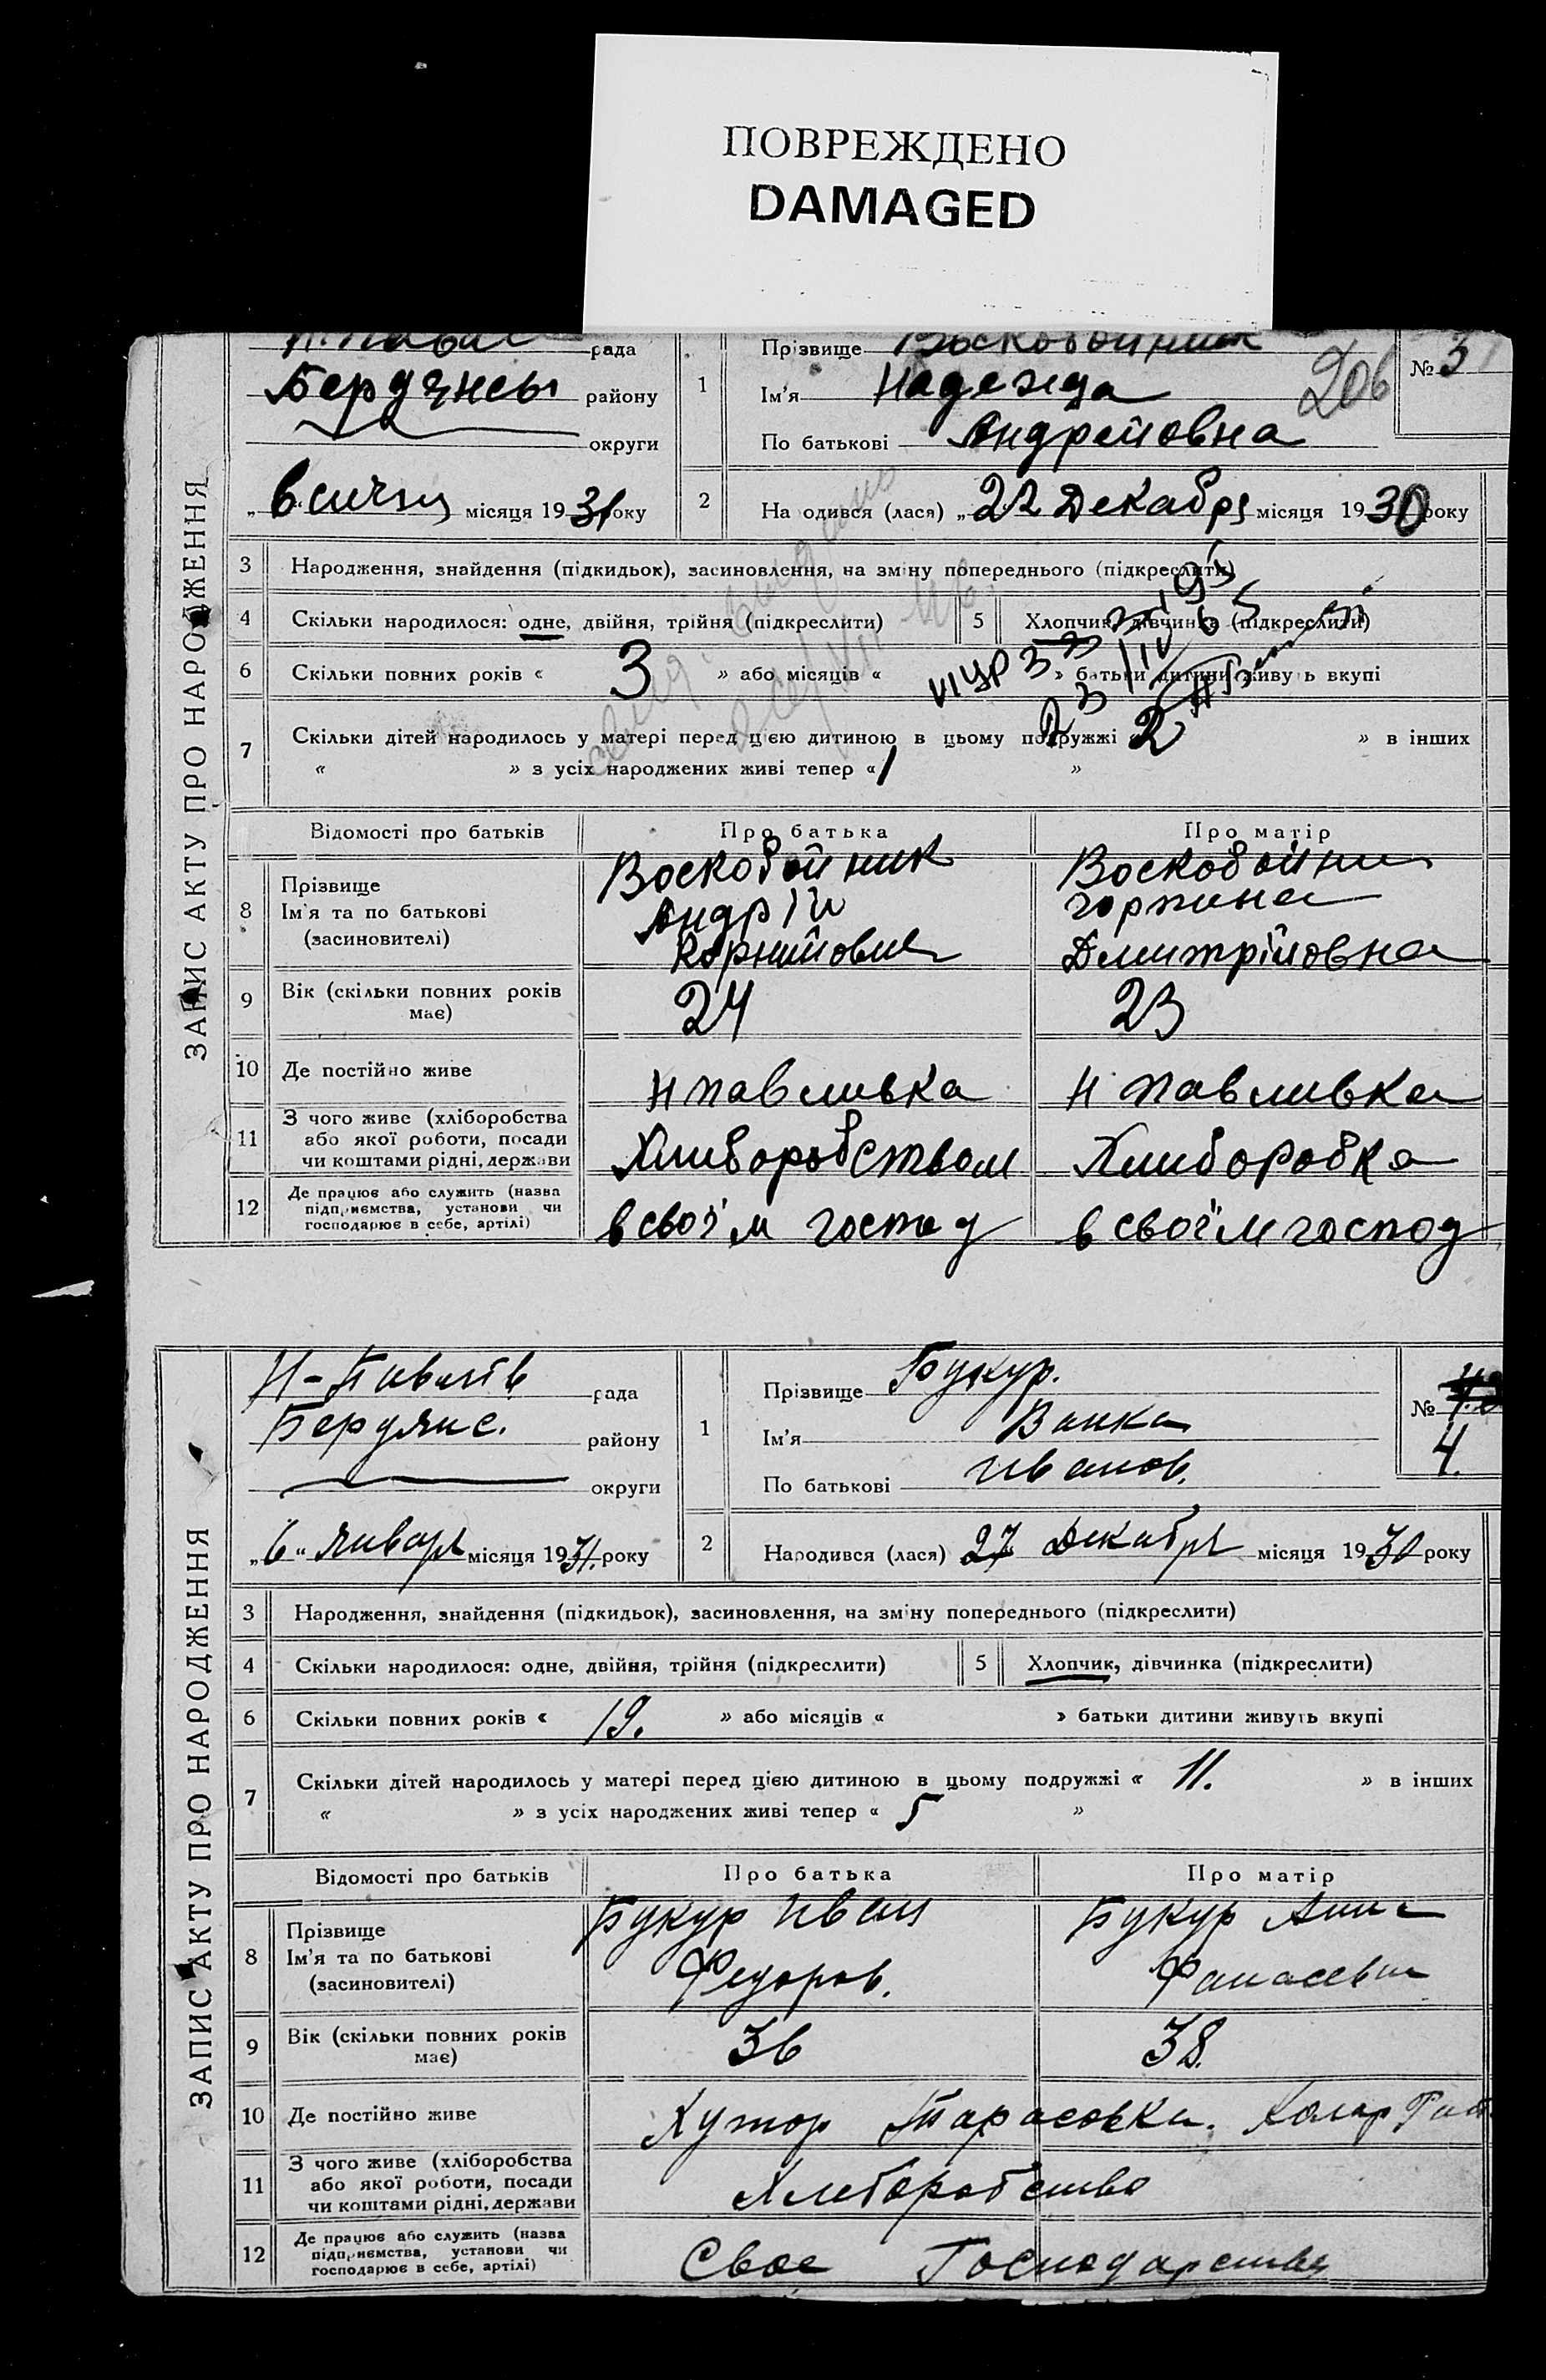 ПОВРЕЖДЕНО
DAMAGED
ЗАПИС АКТУ ПРО НАРОДЖЕННЯ
рада
Бердянсы району
округи
місяця 1931 року
1 Прізвище Воскобойник
Ім'я Надежда
По батькові Андрейовна
206
№ 3
2 На одився (лася) „22 Декабря місяця 1930 року
3 Народження, знайдення (підкидьок), засиновлення, на зміну попереднього (підкреслити)
4 Скільки народилося: одне, двійня, трійня (підкреслити)
5 Хлопчик, дівчинка (підкреслити)
6 Скільки повних років « 3 » або місяців « » батьки дитини живуть вкупі
7 Скільки дітей народилось у матері перед цією дитиною в цьому подружжі « 2 » в інших
« » з усіх народжених живі тепер « 1 »
Відомості про батьків Про батька Про матір
8 Прізвище
Ім'я та по батькові
(засиновителі)
Воскобойник
Андрій
Корнийович
Воскобойник
Горпина
Дмитрійовна
9 Вік (скільки повних років має) 24 23
10 Де постійно живе Н Павливка Н Павливка
11 З чого живе (хліборобства
або якої роботи, посади
чи коштами рідні, держави
Хлиборобством Хлиборобка
12 Де працює або служить (назва
підприємства, установи чи
господарює в себе, артілі)
в своїм господ в своїм господ
ЗАПИС АКТУ ПРО НАРОДЖЕННЯ
Н-Павлів рада
Бердянс. району
округи
„6“ января місяця 1931. року
1 Прізвище Букур.
Ім'я Ванка
По батькові Иванов.
№ 4.
2 Народився (лася) 27 Декабря місяця 1930 року
3 Народження, знайдення (підкидьок), засиновлення, на зміну попереднього (підкреслити)
4 Скільки народилося: одне, двійня, трійня (підкреслити)
5 Хлопчик, дівчинка (підкреслити)
6 Скільки повних років « 19. » або місяців « » батьки дитини живуть вкупі
7 Скільки дітей народилось у матері перед цією дитиною в цьому подружжі « 11. » в інших
« » з усіх народжених живі тепер « 5 »
Відомості про батьків Про батька Про матір
8 Прізвище
Ім'я та по батькові
(засиновителі)
Букур Иван
Федоров.
Букур Анна
Фанасевна
9 Вік (скільки повних років має) 36 38.
10 Де постійно живе Хутор Тарасовка.
11 З чого живе (хліборобства
або якої роботи, посади
чи коштами рідні, держави
Хлеборобство
12 Де працює або служить (назва
підприємства, установи чи
господарює в себе, артілі)
Свое Господарство